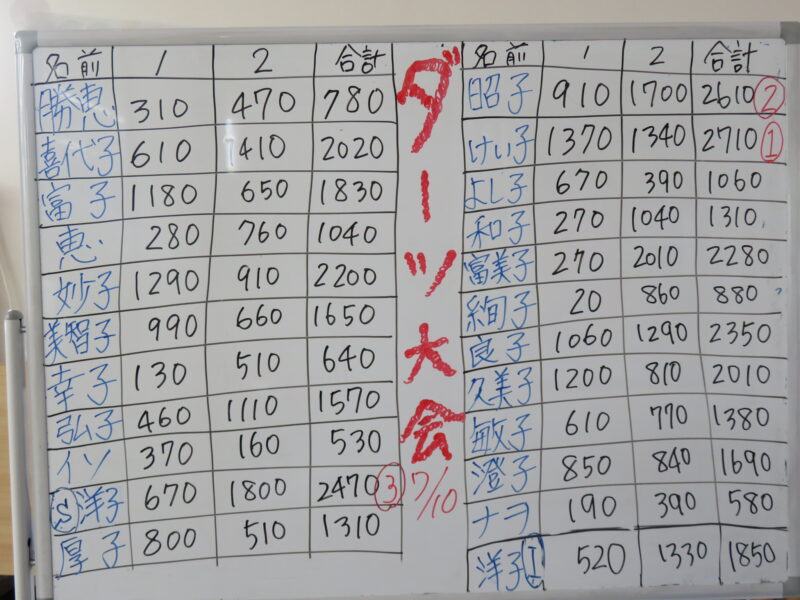 名前 1 2 合計
勝恵 310 470 780
喜代子 610 1410 2020
富子 1180 650 1830
恵 280 760 1040
妙子 1290 910 2200
美智子 990 660 1650
幸子 130 510 640
弘子 460 1110 1570
イソ 370 160 530
S 洋子 670 1800 2470 ③
厚子 800 510 1310
ダーツ大会
7/10
名前 1 2 合計
昭子 910 1700 2610 ②
けい子 1370 1340 2710 ①
よし子 670 390 1060
和子 270 1040 1310
富美子 270 2010 2280
絢子 20 860 880
良子 1060 1290 2350
久美子 1200 810 2010
敏子 610 770 1380
澄子 850 840 1690
ナヲ 190 390 580
洋子 I 520 1330 1850